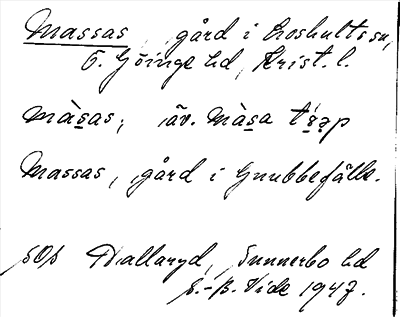 Massas, gård i Loshults sn,
Ö. Göinge hd, Krist. l.
màsas, äv. màsa
Massas, gård i Gnubbefälle.
sos Hallaryd, Sunnerbo hd
S.-B. Vide 1947.